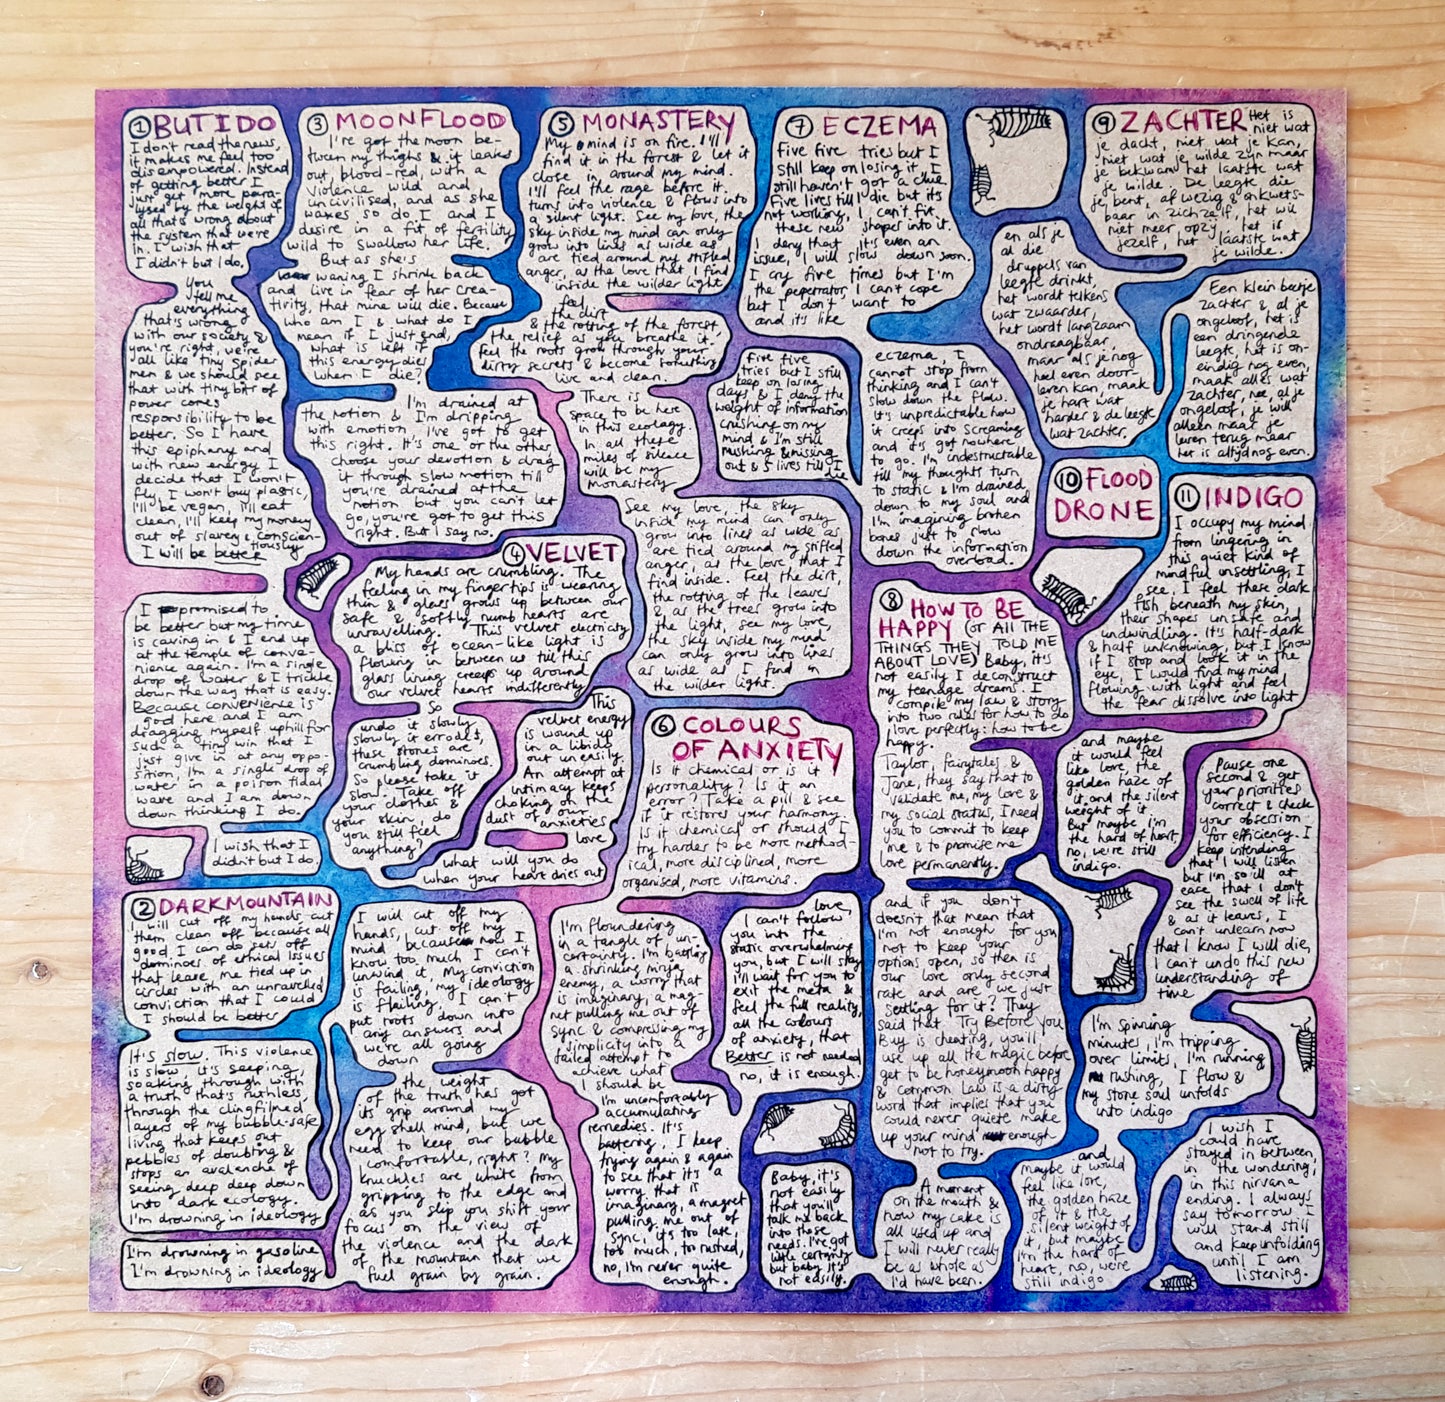 ① BUT I DO
I don't read the news,
it makes me feel too
disempowered. Instead
of getting better I
just get more para-
lysed by the weight of
all that's wrong about
the system that we're
in. I wish that
I didn't but I do.
You
tell me
everything
that's wrong
with our society &
you're right, we're
all like tiny spider
men & we should see
that with tiny bits of
power comes
responsibility to be
better. So I have
this epiphany and
with new energy I
decide that I won't
fly, I won't buy plastic,
I'll be vegan, I'll eat
clean, I'll keep my money
out of slavery & conscien-
tiously
I will be better
I promised to
be better but my time
is caving in & I end up
at the temple of conve-
nience again. I'm a single
drop of water & I trickle
down the way that is easy.
Because convenience is
god here and I am
dragging myself uphill for
such a tiny win that I
just give in at any oppo-
sition, I'm a single drop of
water in a poison tidal
wave and I am down
down thinking I do.
I wish that I
didn't but I do.
② DARK MOUNTAIN
I will cut off my hands, cut
them clean off because all
good I can do sets off
dominoes of ethical issues
that leave me tied up in
circles with an unravelled
conviction that I could
I should be better
It's slow. This violence
is slow, it's seeping,
soaking through with
a truth that's ruthless,
through the clingfilmed
layers of my bubble-safe
living that keeps out
pebbles of doubting &
stops an avalanche of
seeing deep deep down
into dark ecology.
I'm drowning in ideology
I'm drowning in gasoline
I'm drowning in ideology
I will cut off my
hands, cut off my
mind because now I
know too much I can't
unwind it. My conviction
is failing, my ideology
is flailing, I can't
put roots down into
any answers and
we're all going
down
the weight
of the truth has got
its grip around my
egg shell mind, but we
need to keep our bubble
comfortable, right? My
knuckles are white from
gripping to the edge and
as you slip you shift your
focus on the view of
the violence and the dark
of the mountain that we
fuel grain by grain.
③ MOONFLOOD
I've got the moon be-
tween my thighs & it leaks
out, blood-red, with a
violence wild and
uncivilised, and as she
waxes so do I and I
desire in a fit of fertility
wild to swallow her life.
But as she's
waning I shrink back
and live in fear of her crea-
tivity, that mine will die. Because
who am I & what do I
mean if I just end,
what is left if
this energy dies
when I die?
I'm drained at
the notion & I'm dripping
with emotion I've got to get
this right. It's one or the other
choose your devotion & drag
it through slow motion till
you're drained at the
notion but you can't let
go, you've got to get this
right. But I say no.
④ VELVET
My hands are crumbling. The
feeling in my fingertips is wearing
thin & glass grows up between our
safe & softly numb hearts are
unravelling. This velvet electricity
a bliss of ocean-like light is
flowing in between us till this
glass lining creeps up around
our velvet hearts indifferently
So
undo it slowly
slowly it erodes,
these stones are
crumbling dominoes.
So please take it
slow. Take off
your clothes &
your skin, do
you still feel
anything?
This
velvet energy
is wound up
in a libido
out uneasily.
An attempt at
intimacy keeps
choking on the
dust of our
anxieties
love
what will you do
when your heart dries out
⑤ MONASTERY
My mind is on fire. I'll
find it in the forest & let it
close in around my mind.
I'll feel the rage before it
turns into violence & flows into
a silent light. See my love, the
sky inside my mind can only
grow into lines as wide as
are tied around my stifled
anger, as the love that I find
inside the wilder light
feel
the dirt
& the rotting of the forest,
the relief as you breathe it,
feel the roots grow through your
dirty secrets & become something
live and clean.
There is
space to be here
in this ecology.
In all these
miles of silence
will be my
monastery
See my love, the sky
inside my mind can only
grow into lines as wide as
are tied around my stifled
anger, as the love that I
find inside. Feel the dirt,
the rotting of the leaves
& as the trees grow into
the light, see my love,
the sky inside my mind
can only grow into lines
as wide as I find in
the wilder light.
⑥ COLOURS
OF ANXIETY
Is it chemical or is it
personality? Is it an
error? Take a pill & see
if it restores your harmony
Is it chemical or should I
try harder to be more method-
ical, more disciplined, more
organised, more vitamins.
I'm floundering
in a tangle of un-
certainty. I'm battling
a shrinking ninja
enemy, a worry that
is imaginary, a mag-
net pulling me out of
sync & compressing my
simplicity into a
failed attempt to
achieve what
I should be
I'm uncomfortably
accumulating
remedies. It's
battering, I keep
trying again & again
to see that it's a
worry that is
imaginary, a magnet
pulling me out of
sync, it's too late,
too much, too rushed,
no, I'm never quite
enough.
love,
I can't follow
you into the
static overwhelming
you, but I will stay
I'll wait for you to
exit the meta &
feel the full reality,
all the colours
of anxiety, that
Better is not needed
no, it is enough.
⑦ ECZEMA
Five five tries but I
still keep on losing it, I
still haven't got a clue
Five lives till I die but it's
not working, I can't fit
these new shapes into it.
I deny that it's even an
issue, I will slow down soon.
I cry five times but I'm
the perpetrator, I can't cope
but I don't want to
and it's like
Five five
tries but I still
keep on losing
days & I deny the
weight of information
crushing on my
mind & I'm still
rushing & missing
out & 5 lives till I
die
eczema, I
cannot stop from
thinking and I can't
slow down the flow.
It's unpredictable how
it creeps into screaming
and it's got nowhere
to go. I'm indestructable
till my thoughts turn
to static & I'm drained
down to my soul and
I'm imagining broken
bones just to slow
down the information
overload.
⑧ HOW TO BE
HAPPY (OR ALL THE
THINGS THEY TOLD ME
ABOUT LOVE) Baby, it's
not easily I deconstruct
my teenage dreams. I
compile my law & story
into two rules for how to do
love perfectly: how to be
happy.
Taylor, fairytales &
Jane, they say that to
validate me, my love &
my social status, I need
you to commit to keep
me & to promise me
love permanently.
and if you don't
doesn't that mean that
I'm not enough for you
not to keep your
options open, so then is
our love only second
rate and are we just
settling for it? They
said that Try Before You
Buy is cheating, you'll
use up all the magic before
get to be honeymoon happy
& common law is a dirty
word that implies that you
could never quiete make
up your mind enough
not to try.
A moment
on the mouth &
now my cake is
all used up and
I will never really
be as whole as
I'd have been.
Baby, it's
not easily
that you'll
talk me back
into those
needs. I've got
little certainty
but baby it's
not easily.
⑨ ZACHTER Het is
niet wat
je dacht, niet wat je kan,
niet wat je wilde zijn maar
je bekwam het laatste wat
je wilde. De leegte die
je bent, afwezig & onkwets-
baar in zichzelf, het wil
niet meer, op zy het is
jezelf, het laatste wat
je wilde.
en als je
al die
druppels van
leegte drinkt,
het wordt telkens
wat zwaarder,
het wordt langzaam
ondraagbaar,
maar als je nog
heel even door-
leren kan, maak
je hart wat
harder & de leegte
wat zachter.
Een klein beetje
zachter & al je
ongeloof, het is
een dringende
leegte, het is on-
eindig nog even,
maak alles wat
zachter, nee, al je
ongeloof, je wil
alleen maar je
leven terug maar
het is altijd nog even.
⑩ FLOOD
DRONE
⑪ INDIGO
I occupy my mind
from lingering in
this quiet kind of
mindful unsettling, I
see, I feel these dark
fish beneath my skin,
their shapes unsafe and
unwindling. It's half-dark
& half unknowing, but I know
if I stop and look it in the
eye, I would find my mind
flowing with light and feel
the fear dissolve into light
and maybe
it would feel
like love, the
golden haze of
it and the silent
weight of it.
But maybe I'm
the hard of heart,
no, we're still
indigo.
Pause one
second & get
your priorities
correct & check
your obsession
for efficiency. I
keep intending
that I will listen
but I'm so ill at
ease that I don't
see the swell of life
& as it leaves, I
can't unlearn now
that I know I will die,
I can't undo this new
understanding of
time
I'm spinning
minutes, I'm tripping
over limits, I'm running
rushing, I flow &
my stone soul unfolds
into indigo
and
maybe it would
feel like love,
the golden haze
of it & the
silent weight of
it, but maybe
I'm the hard of
heart, no, we're
still indigo
I wish I
could have
stayed in between,
in the wondering,
in this nirvana
ending. I always
say tomorrow I
will stand still
and keep unfolding
until I am
listening.